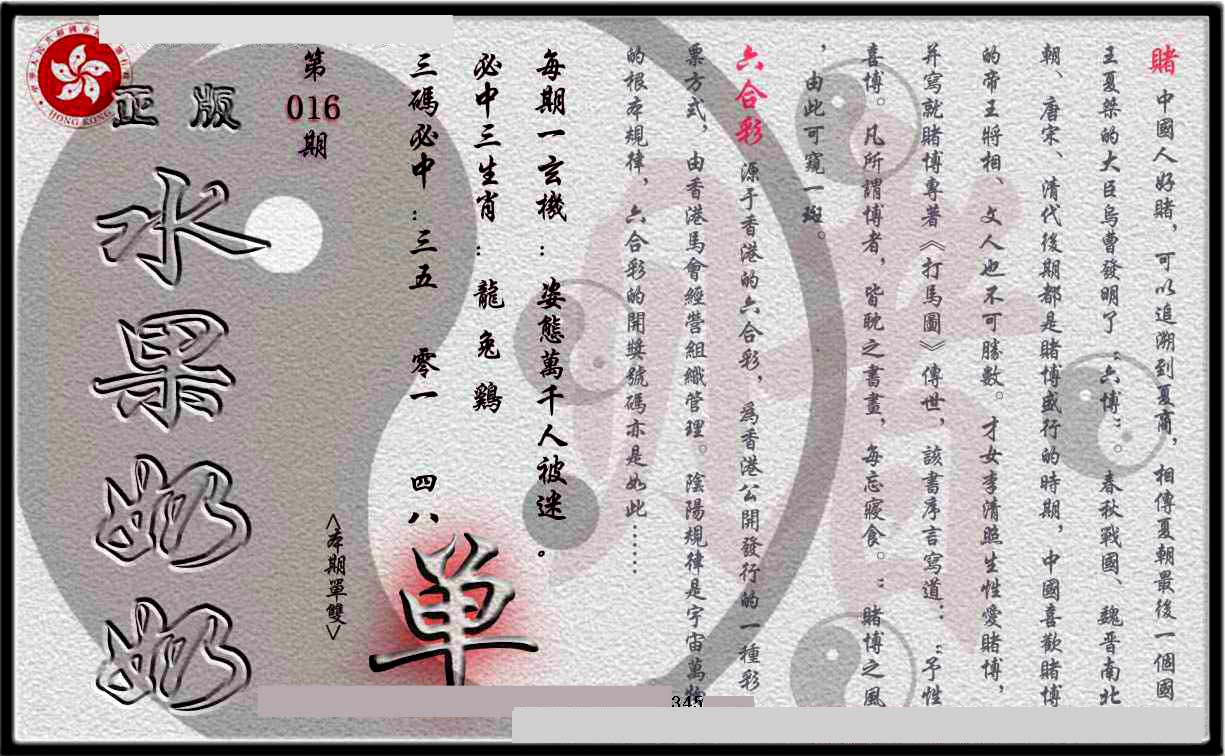 賭 中國人好賭，可以追溯到夏商，相傳夏朝最後一個國
王夏桀的大臣烏曹發明了“六博”。春秋戰國、魏晋南北
朝、唐宋、清代後期都是賭博盛行的時期，中國喜歡賭博
的帝王將相、文人也不可勝數。才女李清照生性愛賭博，
并寫就賭博專著《打馬圖》傳世，該書序言寫道：“予性
喜博。凡所謂博者，皆耽之書畫，每忘寢食。：賭博之風
，由此可窺一斑。
六合彩 源于香港的六合彩，爲香港公開發行的一種彩
票方式，由香港馬會經營組織管理。陰陽規律是宇宙萬物
的根本規律，六合彩的開獎號碼亦是如此……
每期一玄機：姿態萬千人被迷。
必中三生肖：龍兔鷄
三碼必中：三五 零一 四八
<本期單雙>
单
第
016
期
正版
水果奶奶
HONG KONG
345